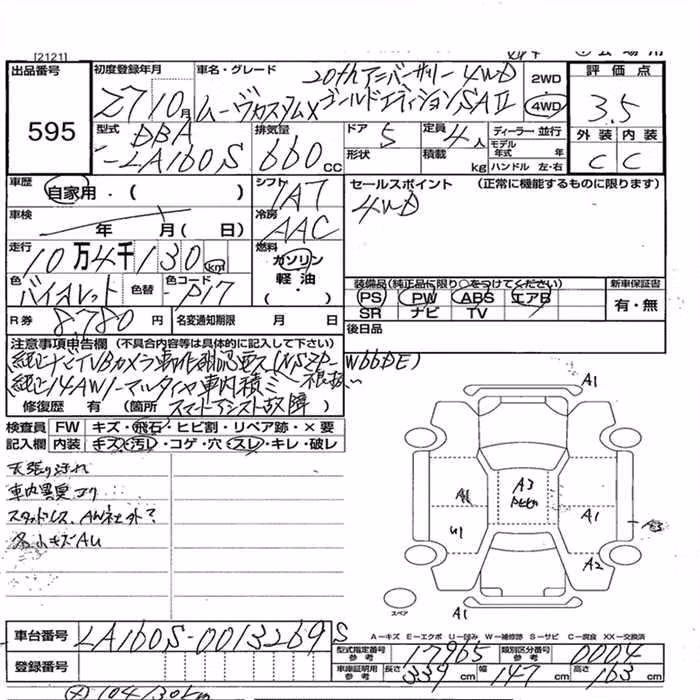 [2121]
出品番号 初度登録年月 車名・グレード 20thアニバーサリー 4WD 2WD 評価点
595 27 10月 ムーヴカスタムX ゴールドエディションSAⅡ 4WD 3.5
型式 DBA 排気量 ドア 5 定員 4人 ディーラー 並行 外装 内装
-LA160S 660cc 形状 積載 kg モデル年式 年 ハンドル 左・右 C C
車歴 自家用・( ) シフト IAT セールスポイント (正常に機能するものに限ります)
車検 年 月 (日) 冷房 AAC 4WD
走行 10万4千130km 燃料 ガソリン 軽油 (・)
色 バイオレット 色替 色コード P17 装備品(純正品に限り○をつけてください) 新車保証書
PS PW ABS エアB 有・無
SR ナビ TV
R券 8,780円 名変通知期限 月 日 後日品
注意事項申告欄 (不具合内容等は具体的に記入して下さい)
純正ナビTVBカメラ動作確認要ス(NSZP-W66DE)
純正14AWノーマルタイヤ車内積ミ
修復歴 有 (箇所 スマートアシスト故障)
検査員 FW キズ・飛石・ヒビ割・リペア跡・×要
記入欄 内装 キズ・汚レ・コゲ・穴・スレ・キレ・破レ
天張り汚れ
車内異臭アリ
スタッドレス、AW社外?
各小キズAU
A1
A3
A1
U1
A1
A3
A2
スペア
A1
A-キズ E-エクボ U-凹み W-補修跡 S-サビ C-腐食 XX-交換済
車台番号 LA160S-0013269 S
型式指定番号 参考 17965 類別区分番号 参考 0004
登録番号
車庫証明用 参考 長さ 339cm 幅 147cm 高さ 163cm
104130km